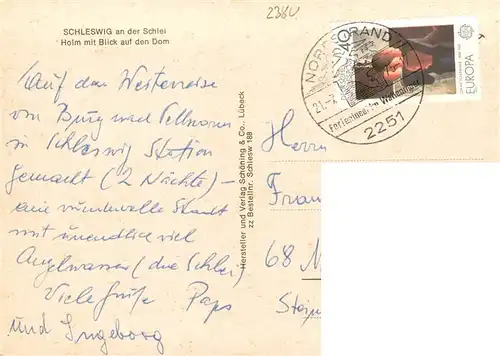 2380
SCHLESWIG an der Schlei
Holm mit Blick auf den Dom
Auf der Weiterreise
von Burg nach Pellworm
in Schleswig Station
gemacht (2 Nächte) –
eine wundervolle Stadt
mit unendlich viel
Angelwasser (die Schlei)
Viele Grüße Paps
und Ingeborg
Hersteller und Verlag Schöning & Co., Lübeck
zz Bestellnr. Schlesw 188
NORDSTRAND
21.-7
Ferieninsel im Wattenmeer
2251
40
EUROPA
Herrn
Fran
68 M
Stein